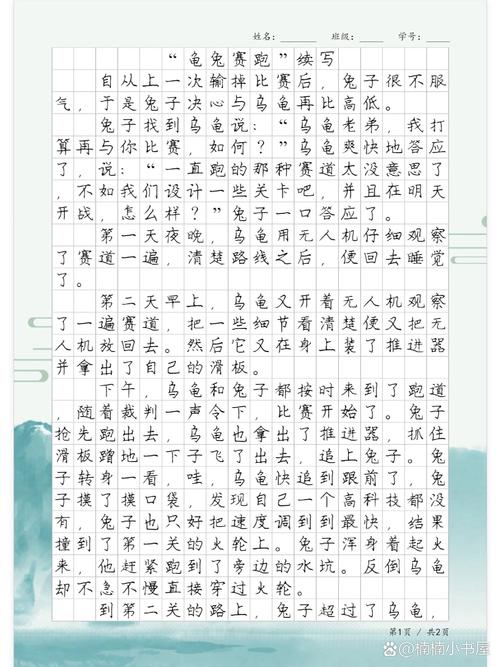 姓名：______ 班级：____ 学号：____
“龟兔赛跑”续写
自从上一次输掉比赛后，兔子很不服
气，于是兔子决心与乌龟再比高低。
兔子找到乌龟说：“乌龟老弟，我打
算再与你比赛，如何？”乌龟爽快地答应
了，说：“一直跑的那种赛道太没意思了
，不如我们设计一些关卡吧，并且在明天
开战，怎么样？”兔子一口答应了。
第一天夜晚，乌龟用无人机仔细观察
了赛道一遍，清楚路线之后，便回去睡觉
了。
第二天早上，乌龟又开着无人机观察
了一遍赛道，把一些细节看清楚便又把无
人机放回去。然后它又在身上装了推进器
并拿出了自己的滑板。
下午，乌龟和兔子都按时来到了跑道
，随着裁判一声令下，比赛开始了。兔子
抢先跑出去，乌龟也拿出了推进器，抓住
滑板蹭地一下子飞了出去，追上兔子。兔
子转身一看，哇，乌龟快追到跟前了，兔
子摸了摸口袋，发现自己一个高科技都没
有，兔子也只好把速度调到到最快，结果
撞到了第一关的火轮上。兔子浑身着起火
来，他赶紧跑到了旁边的水坑。反倒乌龟
却不急不慢直接穿过火轮。
到第二关的路上，兔子超过了乌龟，
第1页 / 共2页
@楠楠小书屋